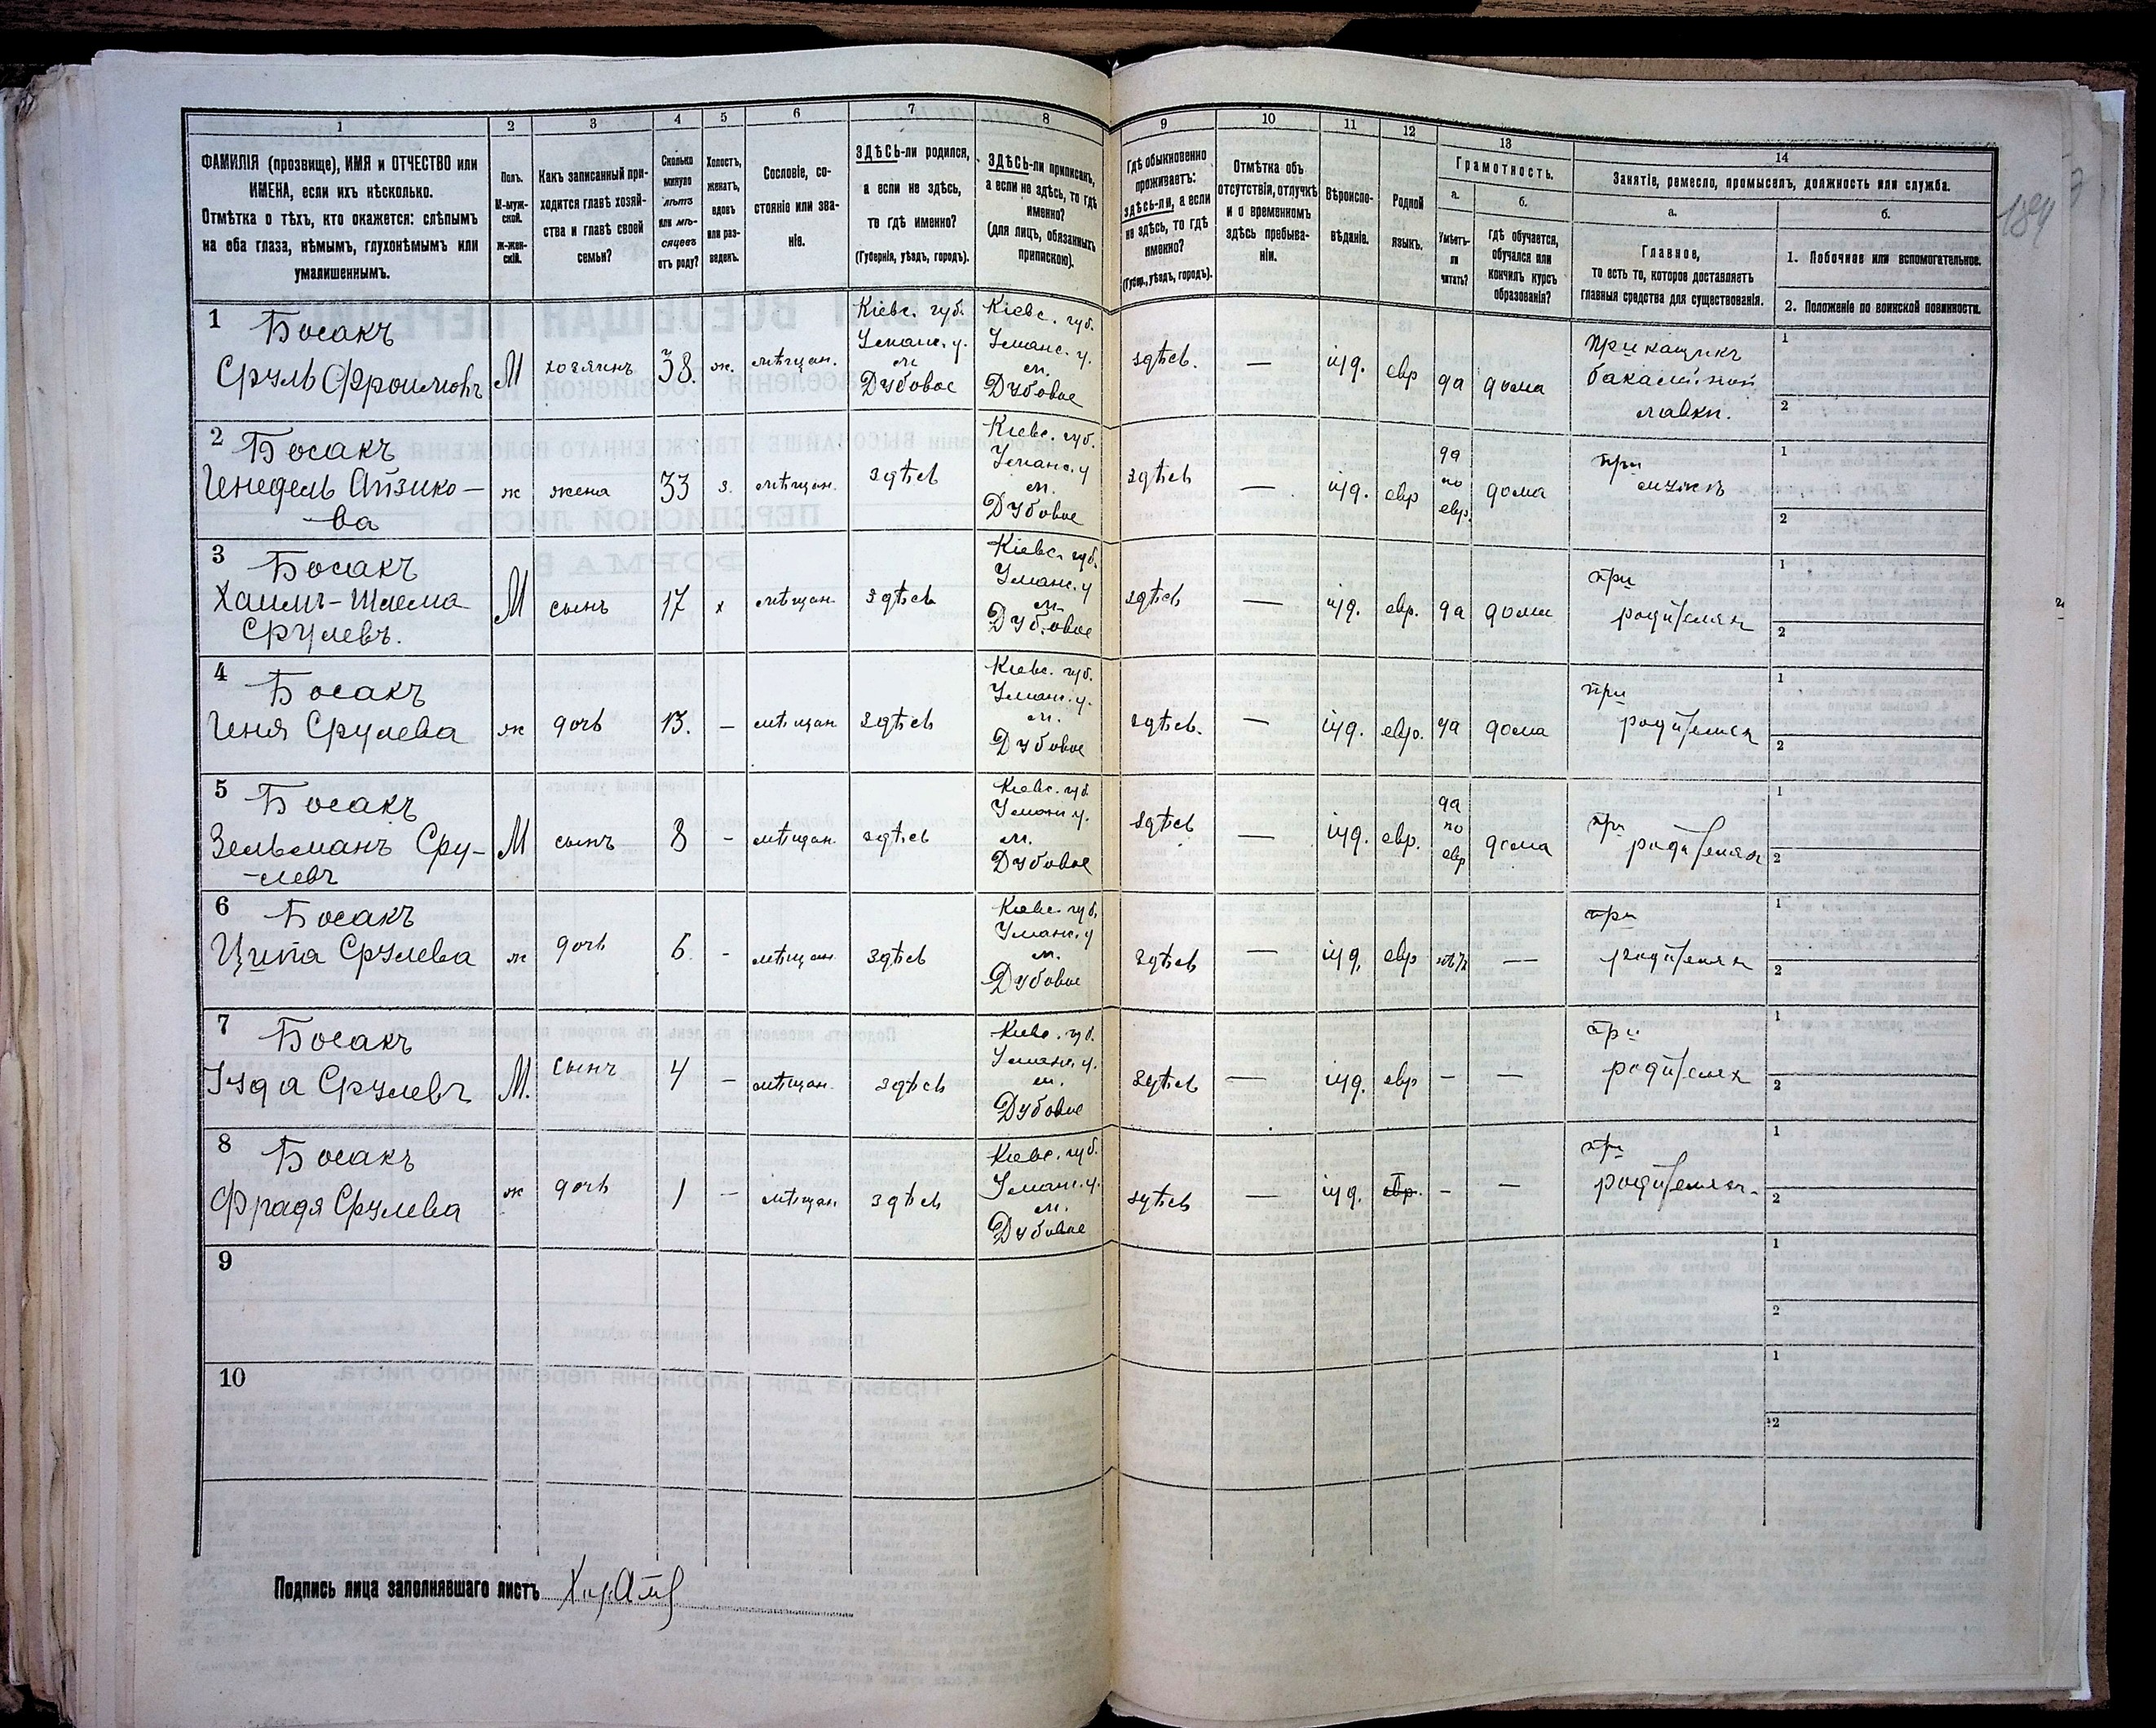 1
2
3
4
5
6
7
8
9
10
11
12
13
14
ФАМИЛІЯ (прозвище), ИМЯ и ОТЧЕСТВО или
ИМЕНА, если ихъ нѣсколько.
Отмѣтка о тѣхъ, кто окажется: слѣпымъ
на оба глаза, нѣмымъ, глухонѣмымъ или
умалишеннымъ.
Полъ.
М-муж-
ской.
Ж-жен-
скій.
Какъ записанный при-
ходится главѣ хозяй-
ства и главѣ своей
семьи?
Сколько
минуло
лѣтъ
или мѣ-
сяцевъ
отъ роду?
Холостъ,
женатъ,
вдовъ
или раз-
веденъ.
Сословіе, со-
стояніе или зва-
ніе.
ЗДѢСЬ-ли родился,
а если не здѣсь,
то гдѣ именно?
(Губернія, уѣздъ, городъ).
ЗДѢСЬ-ли приписанъ,
а если не здѣсь, то гдѣ
именно?
(для лицъ, обязанныхъ
припискою).
Гдѣ обыкновенно
проживаетъ:
здѣсь-ли, а если
не здѣсь, то гдѣ
именно?
(Губер., уѣздъ, городъ).
Отмѣтка объ
отсутствіи, отлучкѣ
и о временномъ
здѣсь пребыва-
ніи.
Вѣроиспо-
вѣданіе.
Родной
языкъ.
Грамотность.
а.
Умѣетъ-
ли
читать?
б.
гдѣ обучается,
обучался или
кончилъ курсъ
образованія?
Занятіе, ремесло, промыселъ, должность или служба.
а.
Главное,
то есть то, которое доставляетъ
главныя средства для существованія.
б.
1. Побочное или вспомогательное.
2. Положеніе по воинской повинности.
1
Босакъ
Сруль Фроимовъ
М
хозяинъ
38.
ж.
мѣщан.
Кіевс. губ.
Уманс. у.
м
Дубовое
Кіевс. губ.
Уманс. у.
м.
Дубовое
здѣсь.
—
іуд.
евр
да
дома
Прикащикъ
бакалейной
лавки.
1
2
2
Босакъ
Генедель Айзико-
-ва
ж
жена
33
з.
мѣщан.
здѣсь
Кіевс. губ.
Уманс. у
м.
Дубовое
здѣсь
—
іуд.
евр
да
по
евр.
дома
при
мужѣ
1
2
3
Босакъ
Хаимъ-Шлема
Срулевъ.
М
сынъ
17
х
мѣщан.
здѣсь
Кіевс. губ.
Уманс. у
м.
Дубовое
здѣсь
—
іуд.
евр.
да
дома
при
родителях
1
2
4
Босакъ
Геня Срулева
ж
дочь
13.
—
мѣщан
здѣсь
Кіевс. губ.
Уманс. у.
м.
Дубовое
здѣсь.
—
іуд.
евр.
да
дома
при
родителях
1
2
5
Босакъ
Зельманъ Сру-
-левъ
М
сынъ
8
-
мѣщан.
здѣсь
Кіевс. губ
Уманс у.
м.
Дубовое
здѣсь
—
іуд.
евр.
да
по
евр
дома
при
родителях
1
2
6
Босакъ
Ципа Срулева
ж
дочь
6
-
мѣщан.
здѣсь
Кіевс. губ.
Уманс. у
м.
Дубовое
здѣсь
—
іуд.
евр
нѣтъ
—
при
родителях
1
2
7
Босакъ
Іуда Срулевъ
М.
сынъ
4
—
мѣщан.
здѣсь
Кіевс. губ.
Уманс. у.
м.
Дубовое
здѣсь
—
іуд.
евр
-
—
при
родителях
1
2
8
Босакъ
Фрадя Срулева
ж
дочь
1
—
мѣщан.
здѣсь
Кіевс. губ.
Уманс. у.
м.
Дубовое
здѣсь
—
іуд.
евр.
-
—
при
родителях.
1
2
9
1
2
10
1
2
Подпись лица заполнявшаго листъ